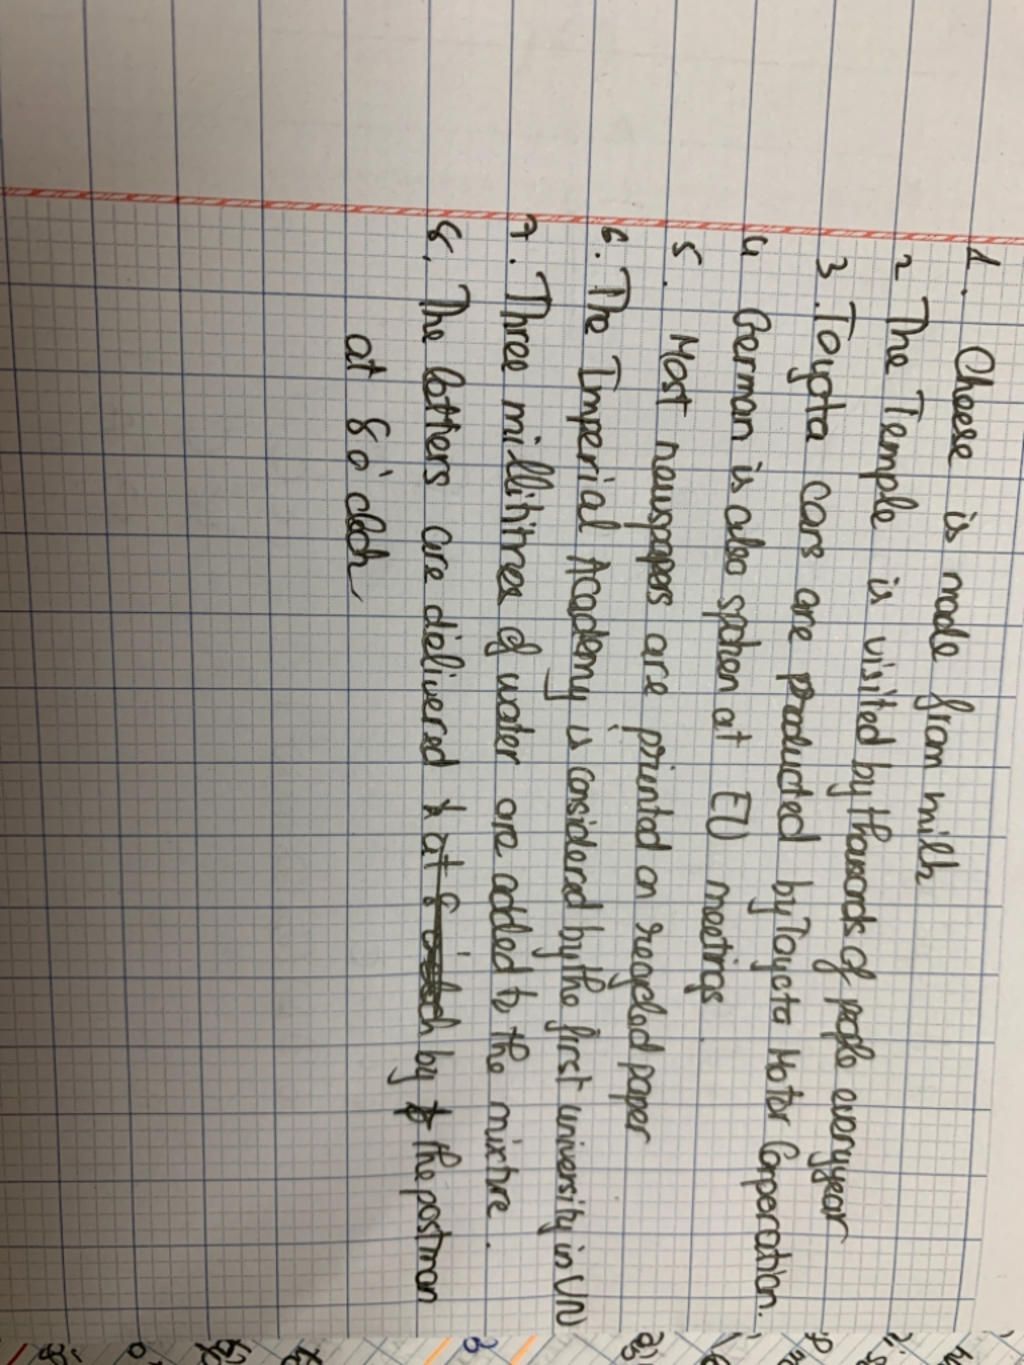 1. Cheese is made from milk
2 The Temple is visited by thousands of people every year
3. Toyota cars are producted by Toyota Motor Corporation.
4 German is also spoken at EU meetings.
5. Most newspapers are printed on recycled paper
6. The Imperial Academy is considered by the first university in VN
7. Three millilitres of water are added to the mixture.
8. The letters are delivered at 8 o'clock by the postman
at 8 o'clock